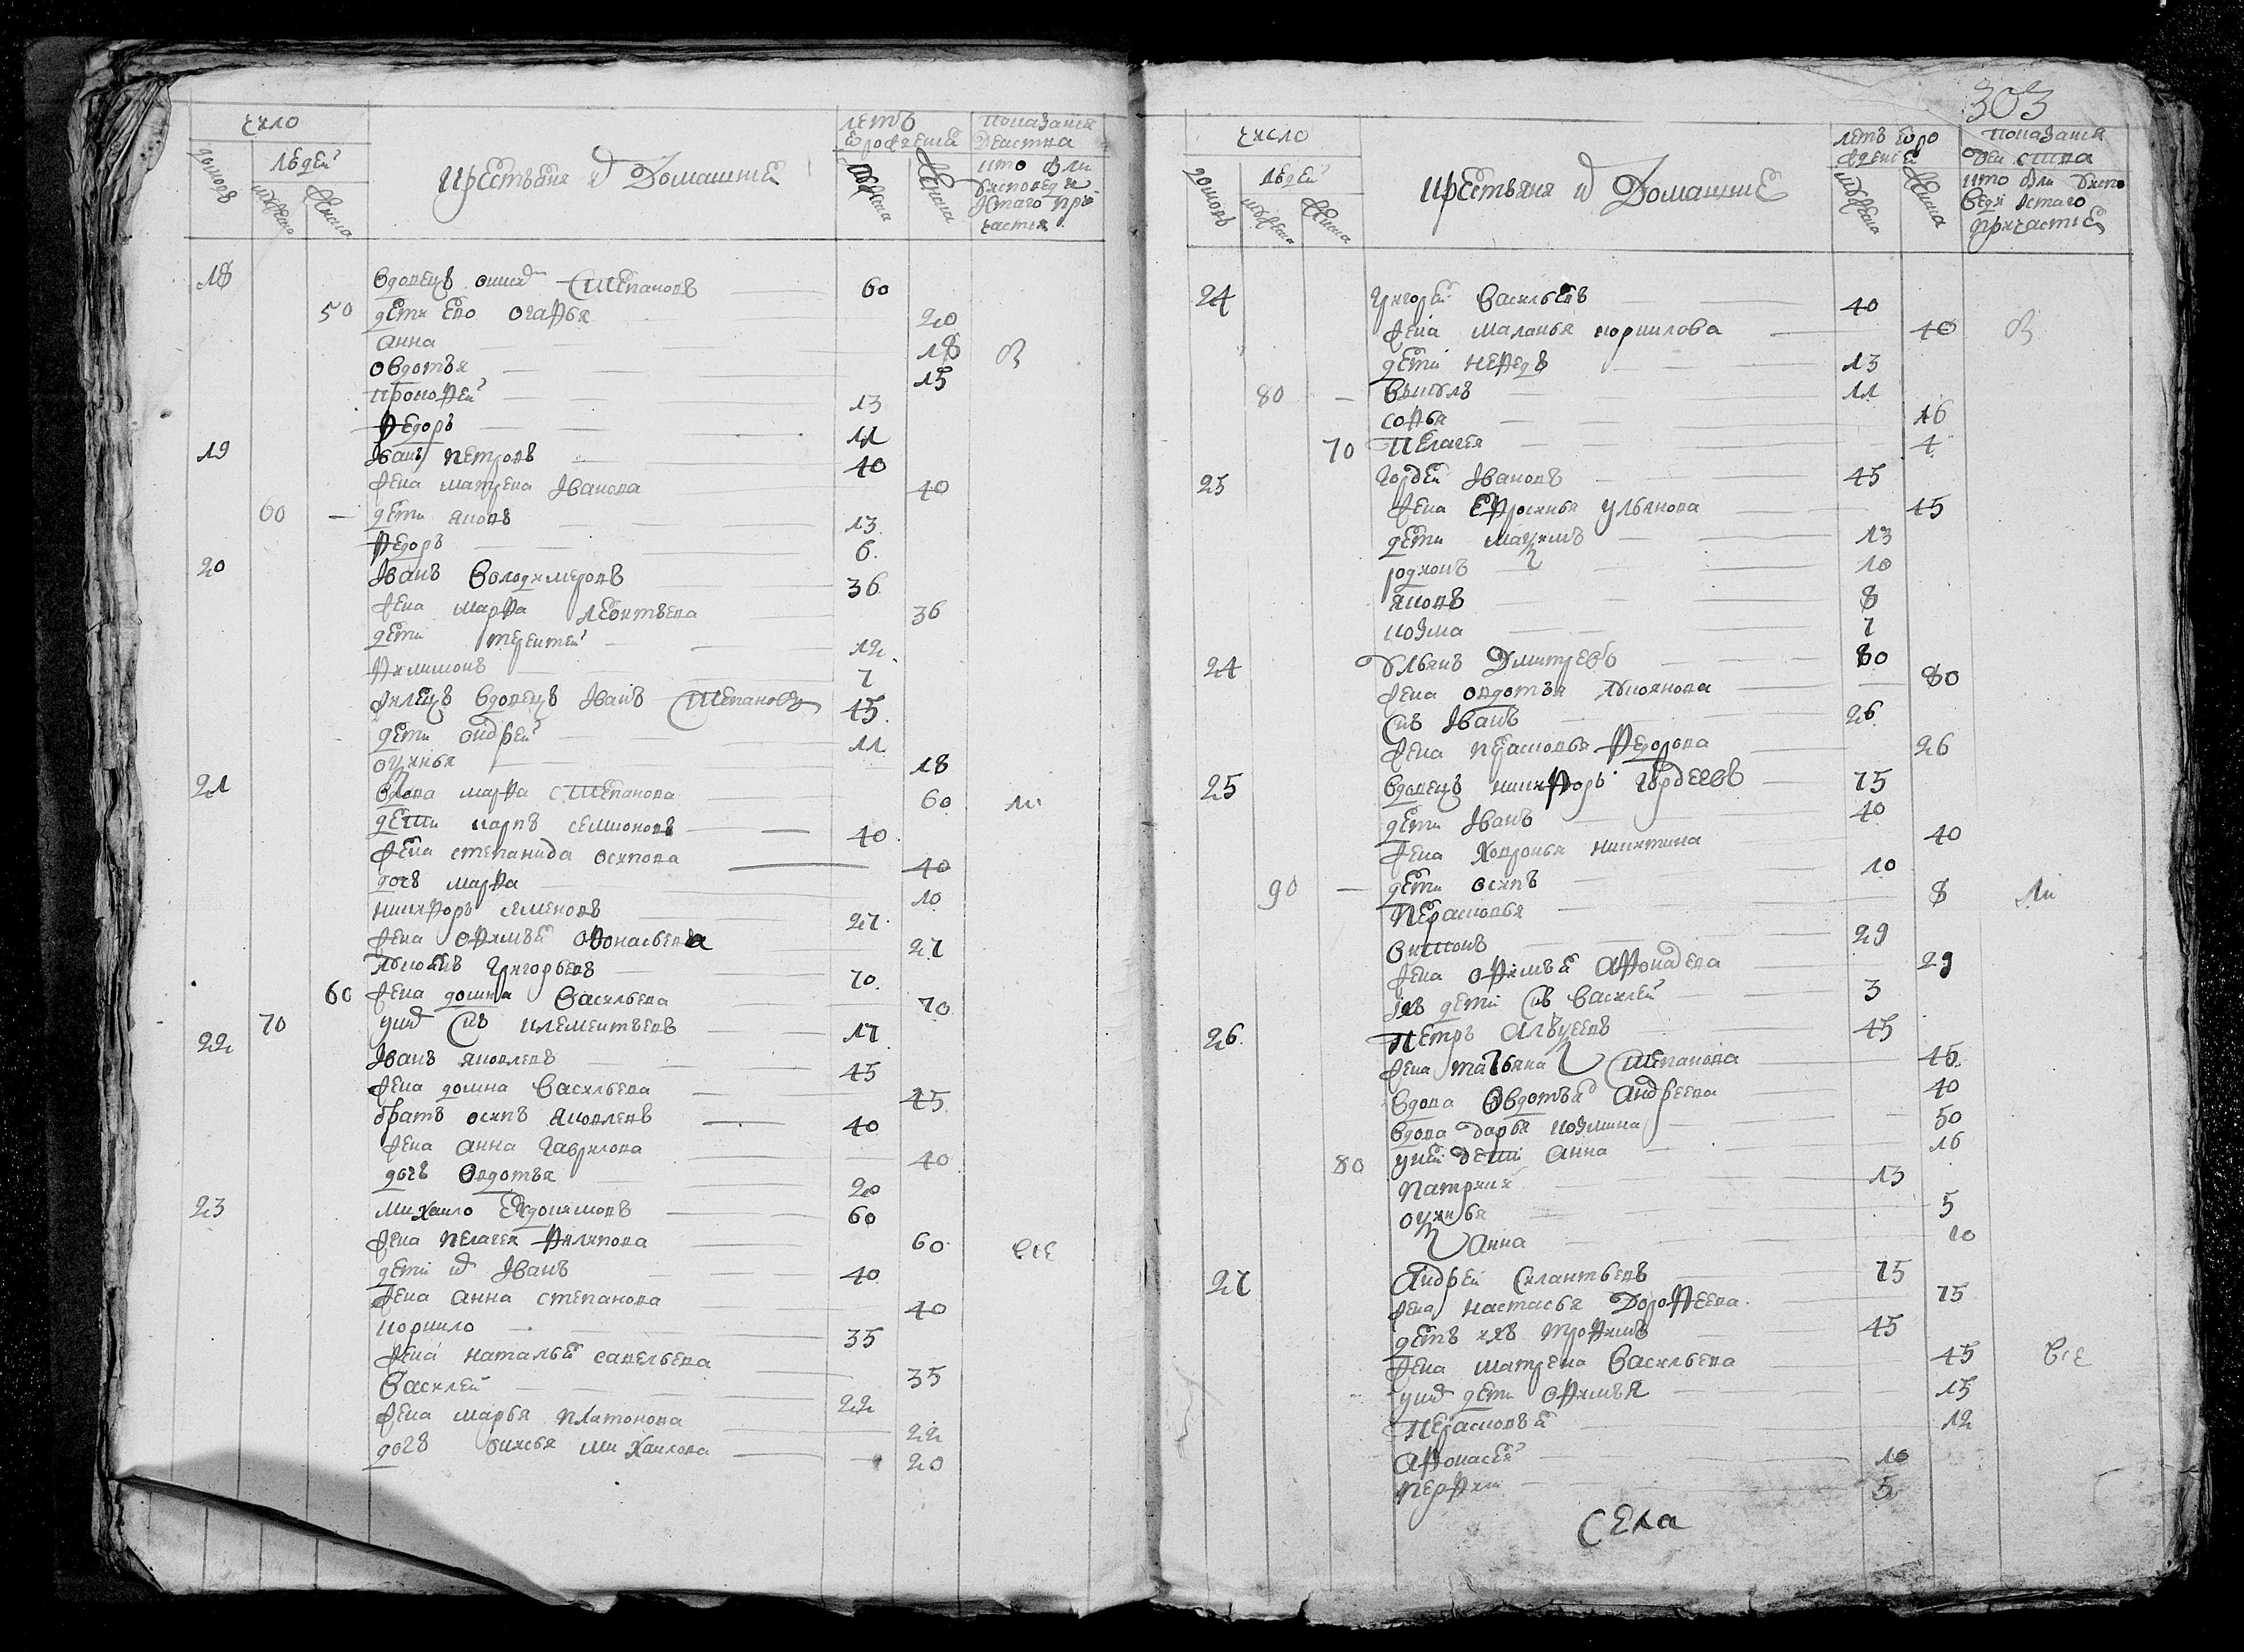 303
число
домовъ
людей
мужеска
женска
крестьяня и домашние
летъ
от рождения
мужеска
женска
показания
действа
кто были
у исповеди
и стаго при
частия
18 вдовецъ Степановъ 60
50 дети ево огафья 20
анна 18
овдотья 15
прокофей 13
федоръ 11
19 Иванъ петровъ 40
жена матрена Иванова 40
60 дети яковъ 13
федоръ 6
20 Иванъ Володимеровъ 36
жена марфа леонтьева 36
дети терентей 12
филимонъ 7
жилецъ вдовецъ Иванъ Степановъ 45
дети ондрей 11
18
21 вдова марфа степанова 60
дети карпъ семионовъ 40
жена степанида осипова 40
дочь марфа 10
никифоръ семеновъ 27
жена офимья офонасьева 27
Григорьевъ 70
60 жена домна Васильева 70
70 снъ клементьевъ 17
22 Иванъ яковлевъ 45
жена домна Васильева 45
братъ осипъ яковлевъ 40
жена анна гаврилова 40
дочь овдотья 20
23 михаило Евдокимовъ 60
жена пелагея филипова 60 все
дети и Иванъ 40
жена анна степанова 40
корнило 35
жена наталья савельева 35
Василей 22
жена марья платонова 22
дочь михаилова 20
число
домовъ
людей
мужеска
женска
крестьяня и домашние
летъ от ро
ждения
мужеска
женска
показания
действа
кто были у испо
веди и стаго
причастие
24 Григорей Васильевъ 40
жена маланья корнилова 40
дети нефедъ 13
80 11
софья 16
70 Пелагея 4
25 гордей Ивановъ 45
жена ефросинья ульянова 45
дети 13
родионъ 10
яковъ 8
козма 7
24 Ульянъ Дмитревъ 80
жена овдотья лукоянова 80
снъ Иванъ 26
жена перасковья федорова 26
25 вдовецъ никифоръ гордеевъ 75
дети Иванъ 40
жена ховронья никитина 40
90 дети осипъ 10
перасковья 8
29
жена офимья афонасева 29
ихъ дети снъ Василей 3
26 Петръ 45
жена татьяна Степанова 45
вдова овдотья андреева 40
вдова дарья козмина 50
80 у ней дети анна 16
патрикей 13
5
анна 10
27 андрей Силантьевъ 75
жена настасья дорофеева 75
дети ихъ трофимъ 45
жена матрена Васильева 45 все
дети офимья 15
перасковья 12
афонасей 10
перфил 5
села